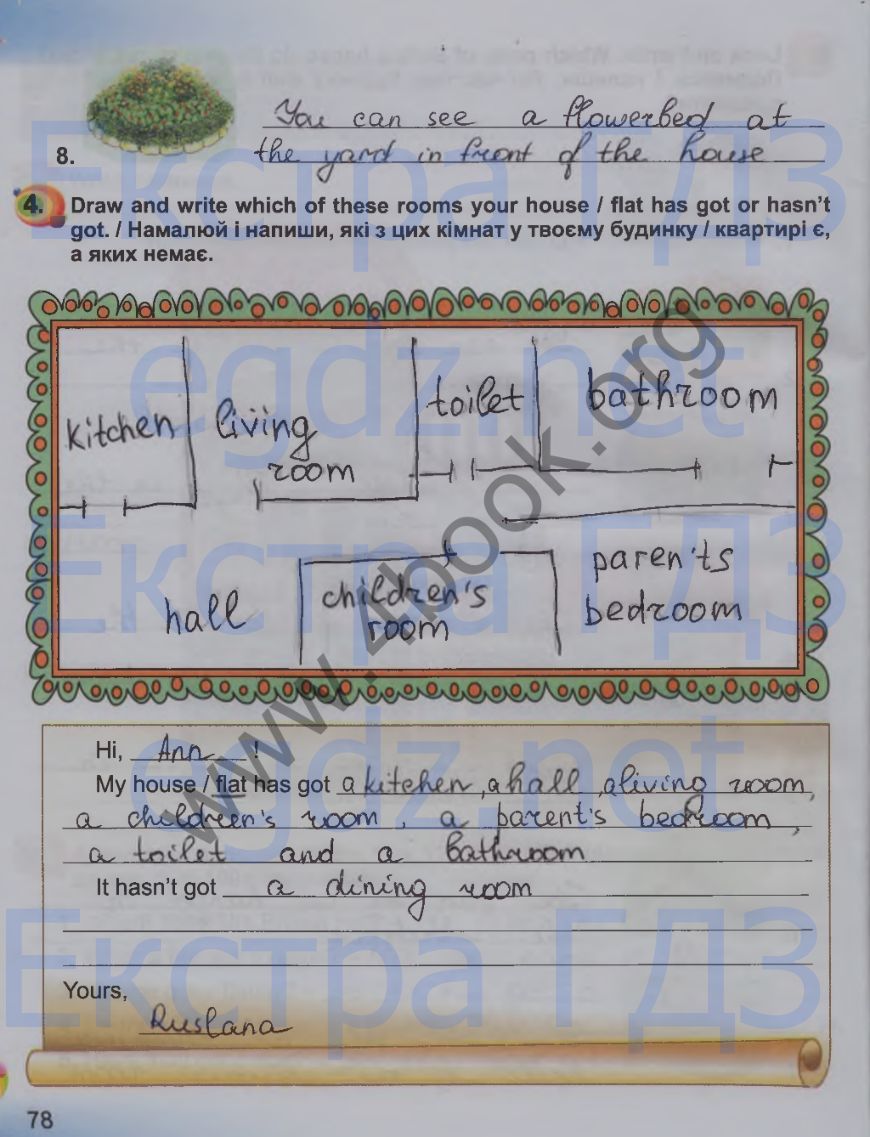 You can see a flowerbed at
8. the yard in front of the house
4. Draw and write which of these rooms your house / flat has got or hasn't
got. / Намалюй і напиши, які з цих кімнат у твоєму будинку / квартирі є,
а яких немає.
kitchen
living
room
toilet
bathroom
hall
children's
room
paren'ts
bedroom
Hi, Ann !
My house / flat has got a kitchen, a hall, a living room,
a children's room, a parent's bedroom,
a toilet and a bathroom
It hasn't got a dining room
Yours,
Ruslana
78
Екстра ГДЗ
egdz.net
Екстра ГДЗ
egdz.net
Екстра ГДЗ
www.4book.org